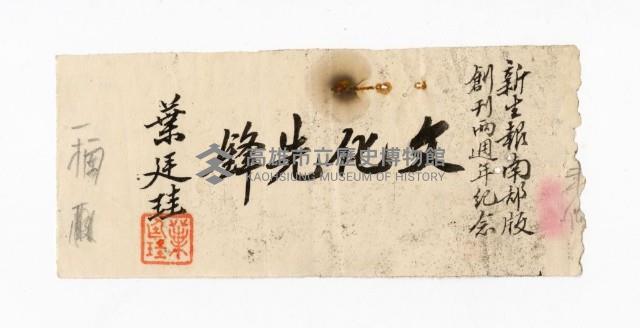 新生報南部版
創刊兩週年紀念
文化先鋒
葉廷珪
葉廷珪
高雄市立歷史博物館
KAOHSIUNG MUSEUM OF HISTORY